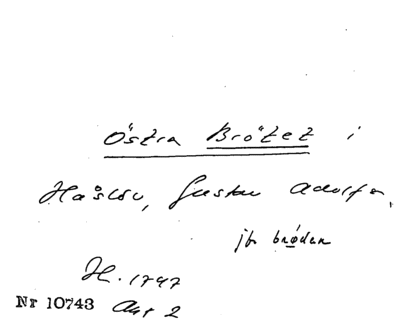 Östra Brötet i
Håslöv, Gustav Adolfs.
jfr bröden
H. 1797
Nr 10743 Akt 2